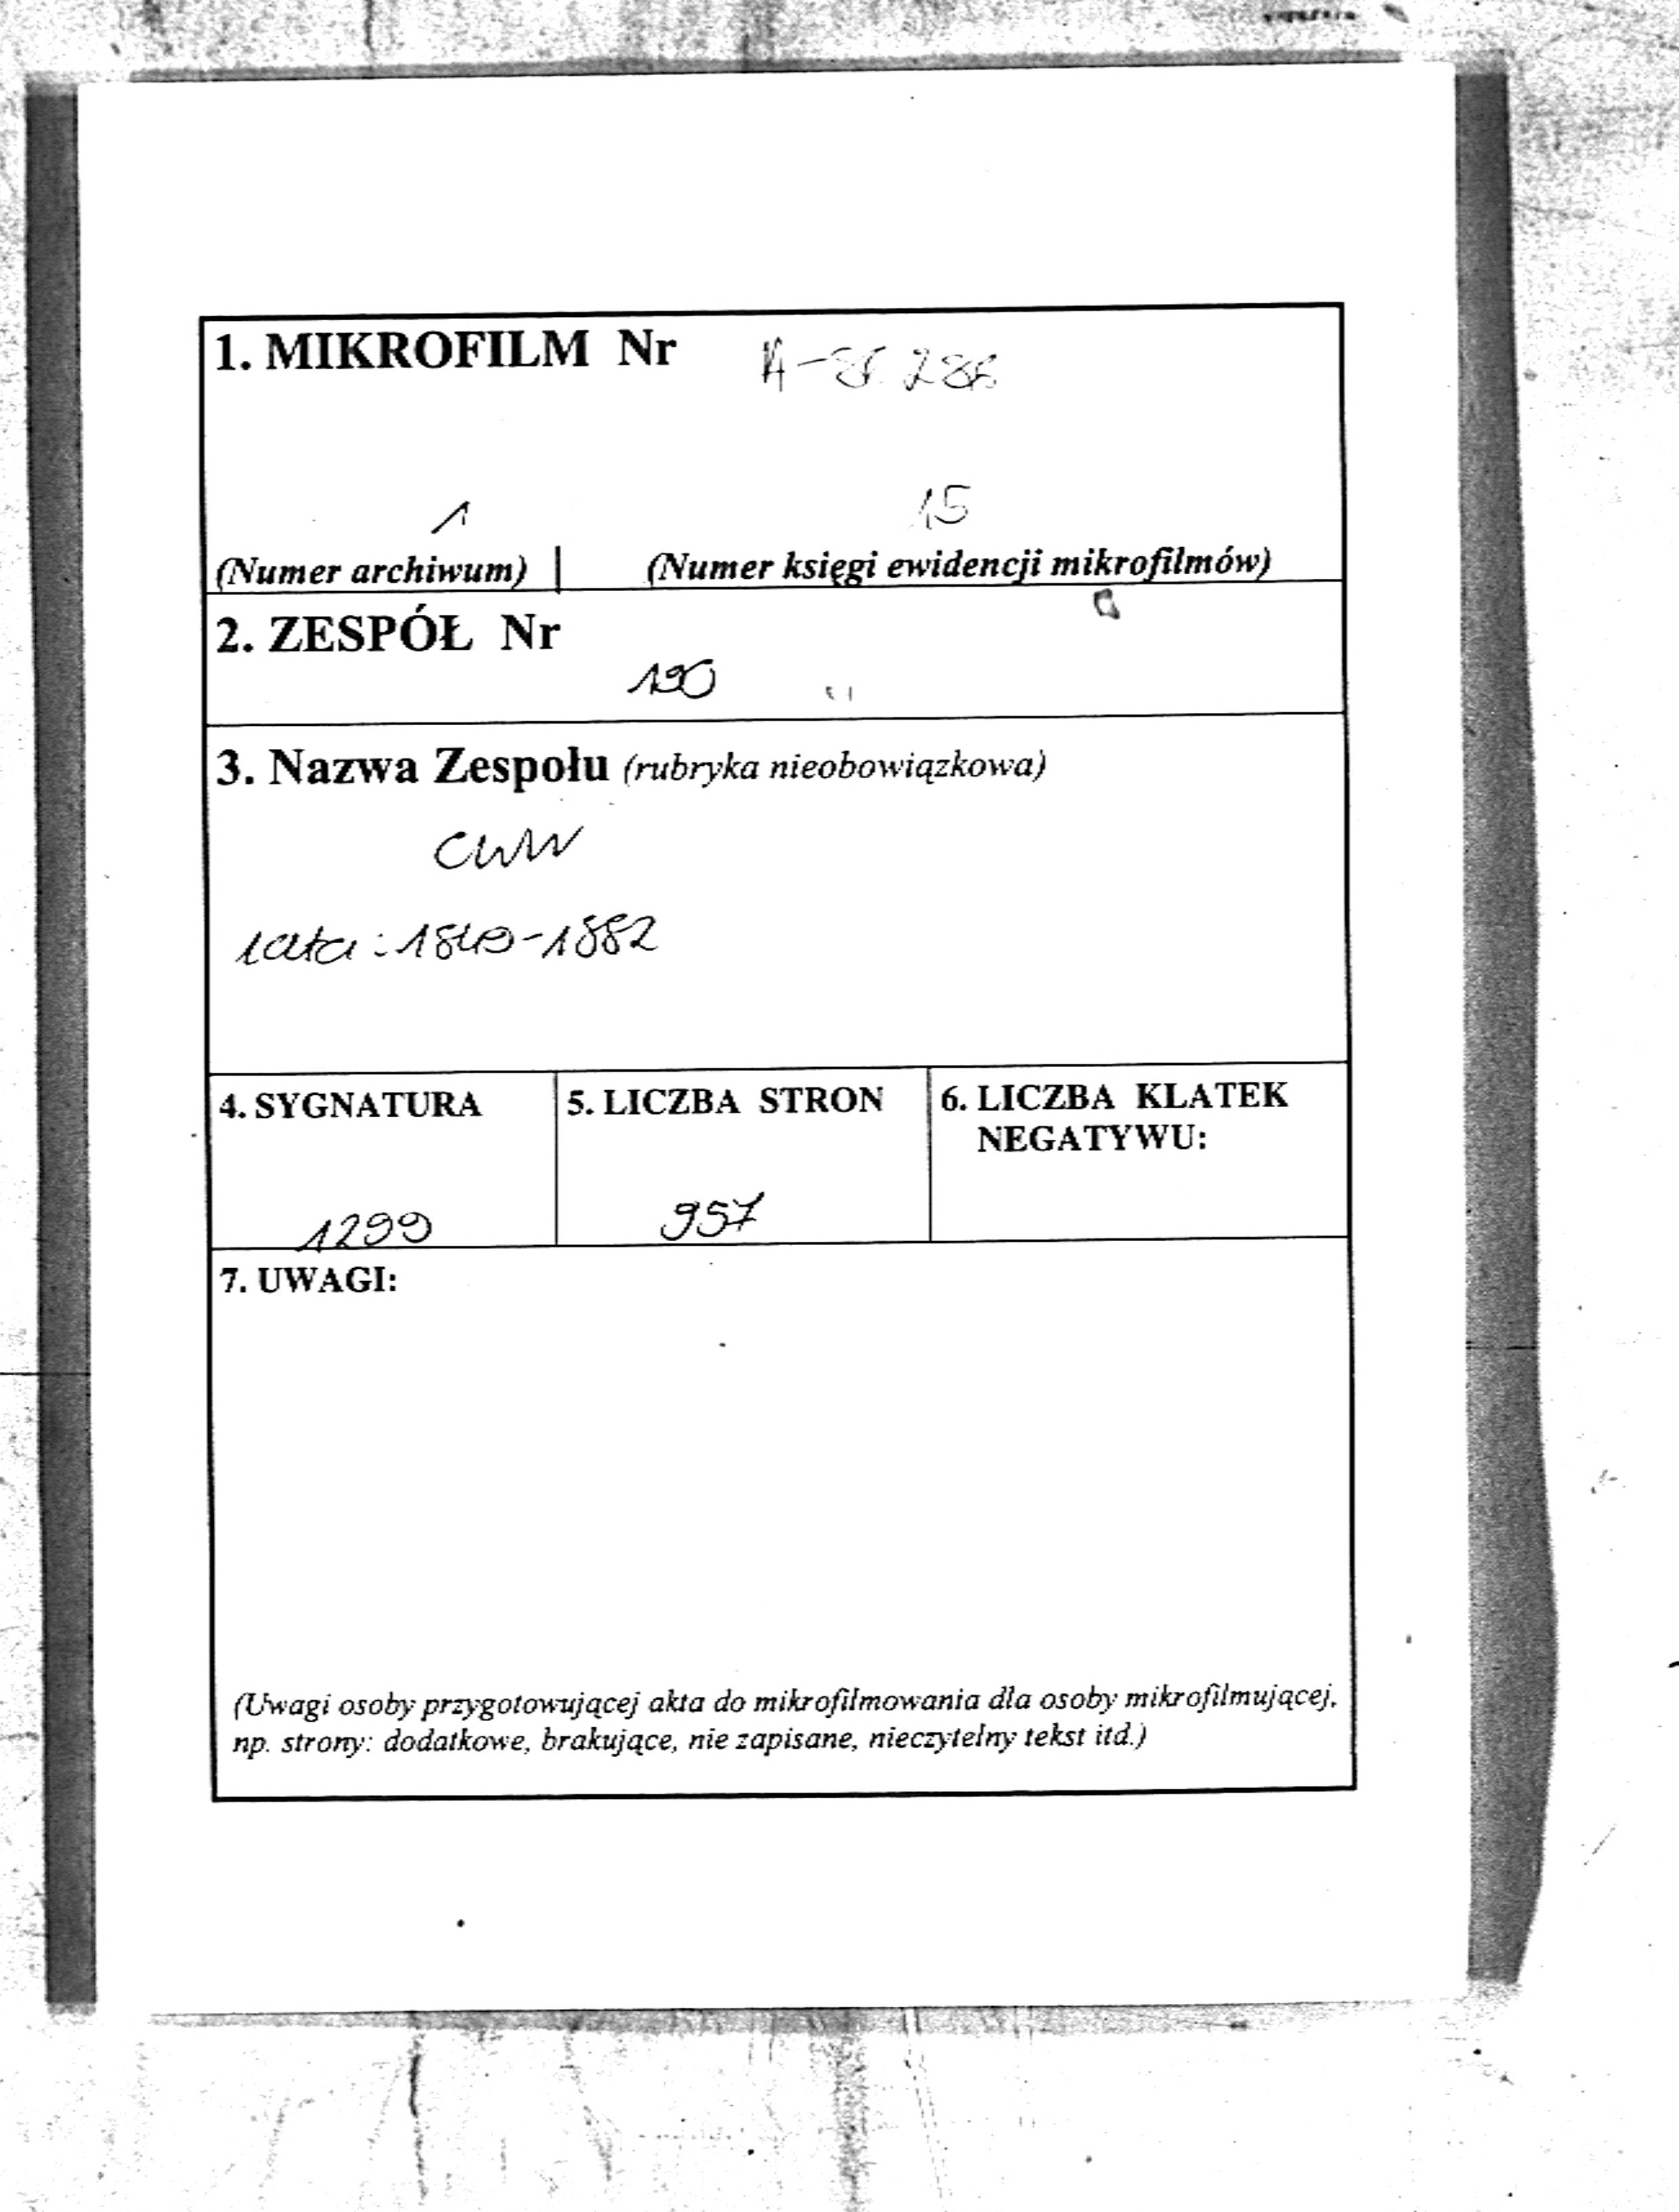 1. MIKROFILM Nr
1 15
(Numer archiwum) | (Numer księgi ewidencji mikrofilmów)
2. ZESPÓŁ Nr
190
3. Nazwa Zespołu (rubryka nieobowiązkowa)
CWW
lata: 1840-1882
4. SYGNATURA
1299
5. LICZBA STRON
957
6. LICZBA KLATEK
NEGATYWU:
7. UWAGI:
(Uwagi osoby przygotowującej akta do mikrofilmowania dla osoby mikrofilmującej,
np. strony: dodatkowe, brakujące, nie zapisane, nieczytelny tekst itd.)